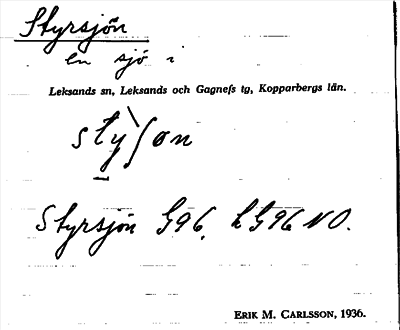 Styrsjön
en sjö i
Leksands sn, Leksands och Gagnefs tg, Kopparbergs län.
styʃøn
Styrsjön G96, LG96 NO.
ERIK M. CARLSSON, 1936.